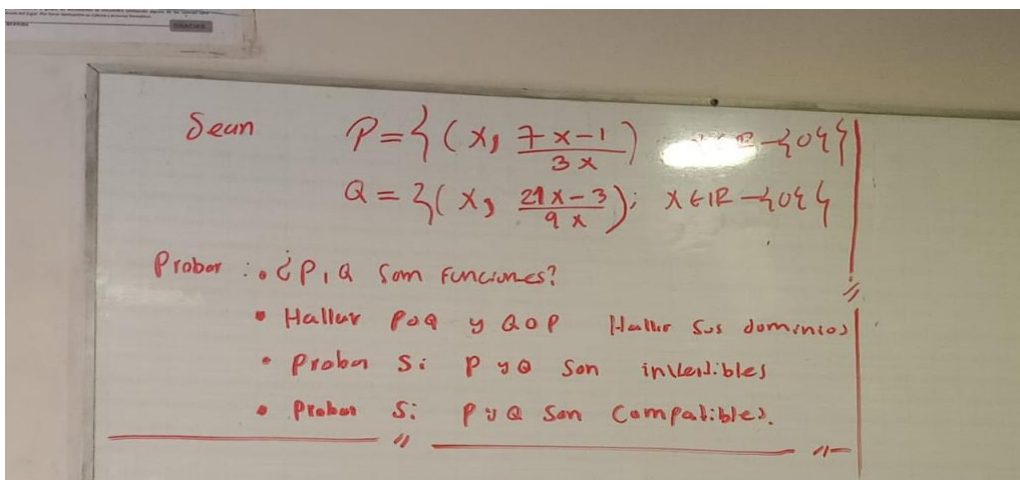 GRACIAS
Sean P = { (x, 7x-1 / 3x) x∈R-{0} }
Q = { (x, 21x-3 / 9x); x∈IR-{0} }
Probar : • ¿P, Q son funciones?
• Hallar PoQ y QoP Hallar sus dominios
• Probar Si P y Q son invertibles
• Probar Si P y Q son Compatibles.